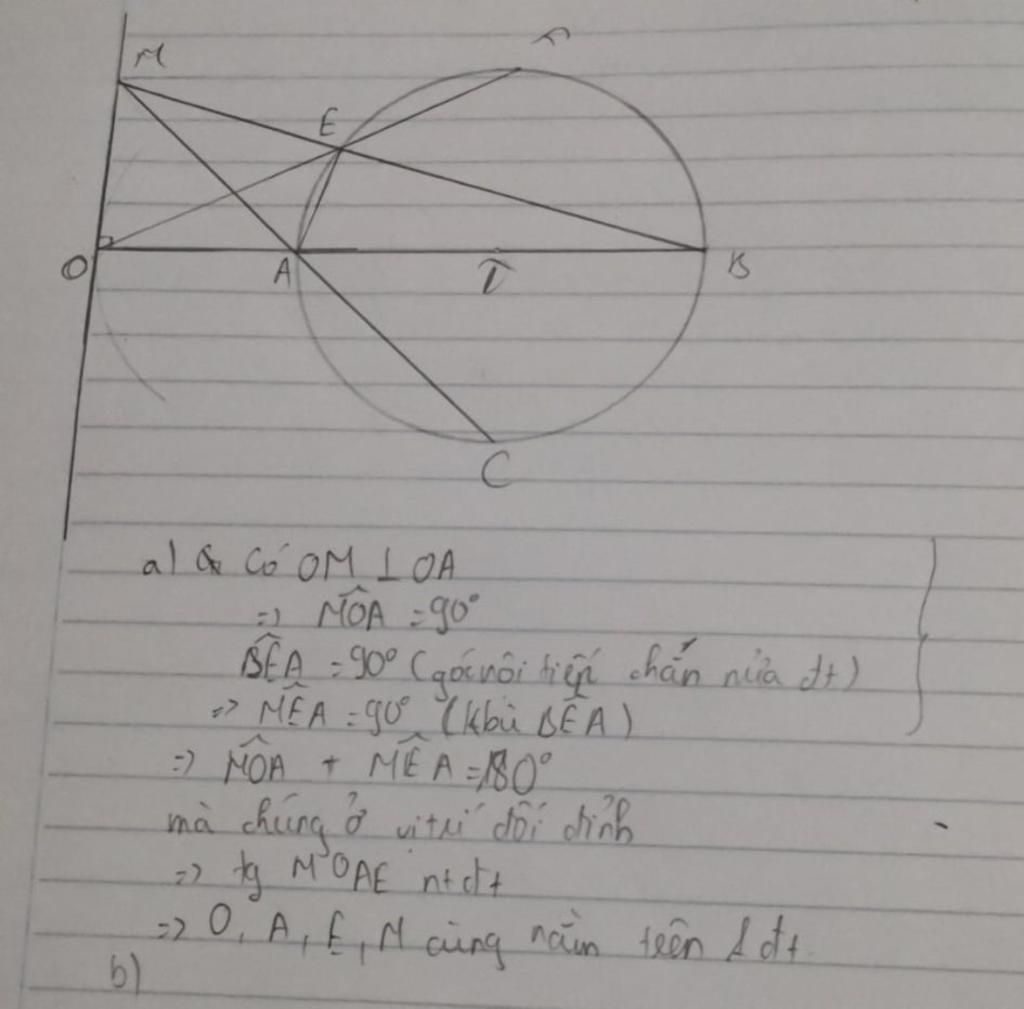 M
F
E
O
A
I
B
C
a) Có OM ⊥ OA
=) M̂OA = 90°
BÊA = 90° (góc nội tiếp chắn nửa đt)
=> MÊA = 90° (kbù BÊA)
=) MÔA + MÊA = 180°
mà chúng ở vị trí đối đỉnh
=> tg MOAE ntđt
=> O, A, E, M cùng nằm trên 1 đt.
b)